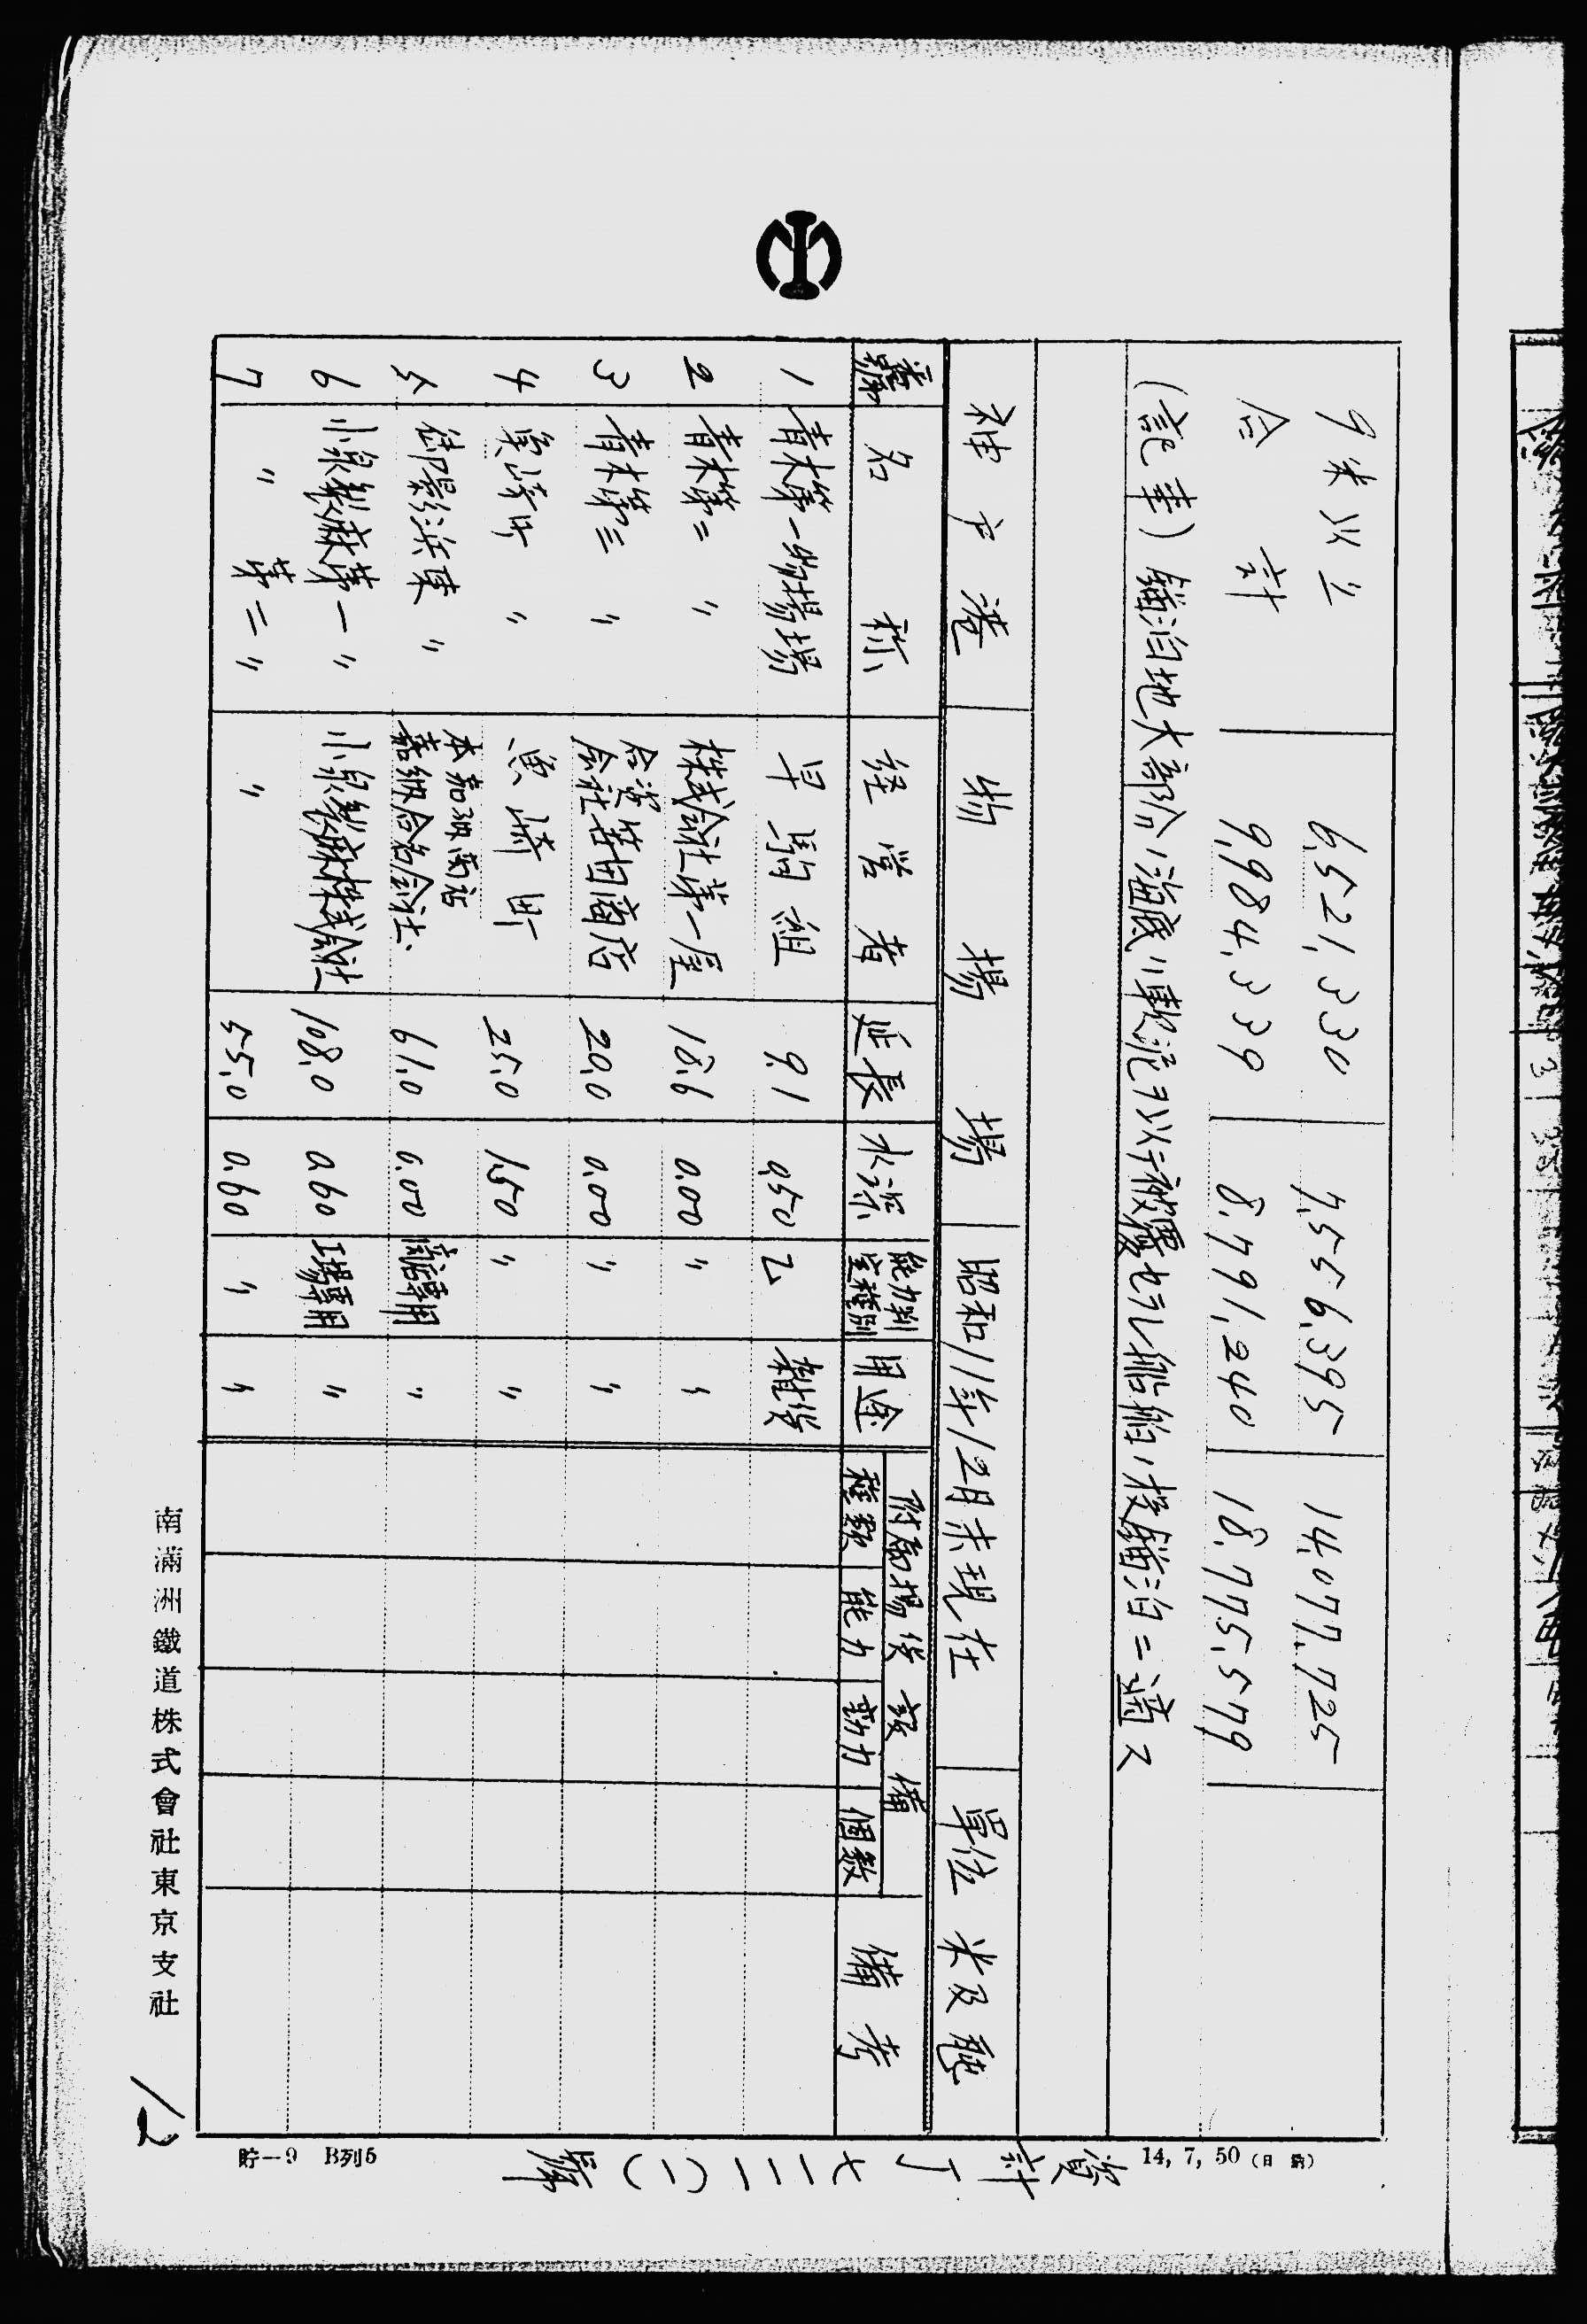 9米以上 6,521,330 7,556,395 14,077,725
合計 9,984,339 8,791,240 18,775,579
(記事) 錨泊地大部分ノ海底ハ軟泥ヲ以テ被覆セラレ船舶ノ投錨泊ニ適ス
神戸港 物揚場 昭和11年12月末現在 單位 米及瓲
番號 名称 経営者 延長 水深 能力判定種別 用途 附属揚役設備 備考
種類 能力 動力 個数
1 青木第一物揚場 早駒組 9.1 0.50 乙 雑役
2 青木第二 〃 株式会社第一屋 18.6 0.00 〃 〃
3 青木第三 〃 合資会社 商店 20.0 0.00 〃 〃
4 魚崎町 〃 魚崎町 25.0 1.50 〃 〃
5 御影浜東 〃 本嘉納商店 嘉納合名会社 61.0 0.00 商店専用 〃
6 小泉製麻第一 〃 小泉製麻株式会社 108.0 0.60 工場専用 〃
7 〃 第二 〃 〃 55.0 0.60 〃 〃
南滿洲鐵道株式會社東京支社
12
貯—9 B列5
資計丁七一一(一)
14, 7, 50